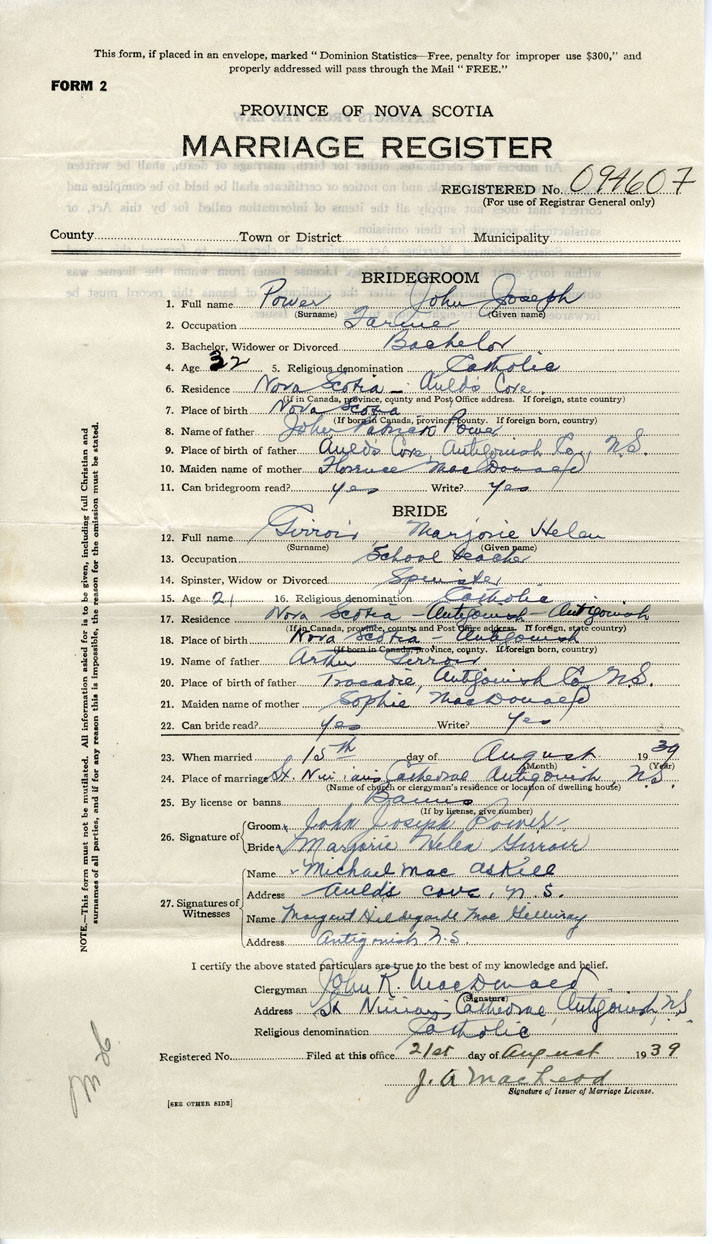 This form, if placed in an envelope, marked "Dominion Statistics—Free, penalty for improper use $300," and
properly addressed will pass through the Mail "FREE."
FORM 2
PROVINCE OF NOVA SCOTIA
MARRIAGE REGISTER
REGISTERED No. 094607
(For use of Registrar General only)
County Town or District Municipality
BRIDEGROOM
1. Full name Power John Joseph
(Surname) (Given name)
2. Occupation
3. Bachelor, Widower or Divorced Bachelor
4. Age 32 5. Religious denomination Catholic
6. Residence Nova Scotia - Auld's Cove
(If in Canada, province, county and Post Office address. If foreign, state country)
7. Place of birth Nova Scotia
(If born in Canada, province, county. If foreign born, country)
8. Name of father John Patrick Power
9. Place of birth of father Auld's Cove, Antigonish Co., N.S.
10. Maiden name of mother Florence MacDonald
11. Can bridegroom read? yes Write? yes
BRIDE
12. Full name Girroir Marjorie Helen
(Surname) (Given name)
13. Occupation School teacher
14. Spinster, Widow or Divorced Spinster
15. Age 21 16. Religious denomination Catholic
17. Residence Nova Scotia - Antigonish - Antigonish
(If in Canada, province, county and Post Office address. If foreign, state country)
18. Place of birth Nova Scotia - Antigonish
(If born in Canada, province, county. If foreign born, country)
19. Name of father Arthur Girroir
20. Place of birth of father Tracadie, Antigonish Co., N.S.
21. Maiden name of mother Sophie MacDonald
22. Can bride read? yes Write? yes
23. When married 15th day of August 1939
(Month) (Year)
24. Place of marriage St. Ninian's Cathedral Antigonish, N.S.
(Name of church or clergyman's residence or location of dwelling house)
25. By license or banns Banns
(If by license, give number)
26. Signature of Groom John Joseph Power
Bride Marjorie Helen Girroir
27. Signatures of Witnesses
Name Michael Mac Askill
Address Auld's Cove, N.S.
Name Margaret Hildegarde Mac Gillivray
Address Antigonish N.S.
I certify the above stated particulars are true to the best of my knowledge and belief.
Clergyman John R. MacDonald
(Signature)
Address St Ninian's Cathedral, Antigonish, N.S.
Religious denomination Catholic
Registered No. Filed at this office 21st day of August 1939
J. A MacLeod
Signature of Issuer of Marriage License.
[SEE OTHER SIDE]
NOTE.—This form must not be mutilated. All information asked for is to be given, including full Christian and
surnames of all parties, and if for any reason this is impossible, the reason for the omission must be stated.